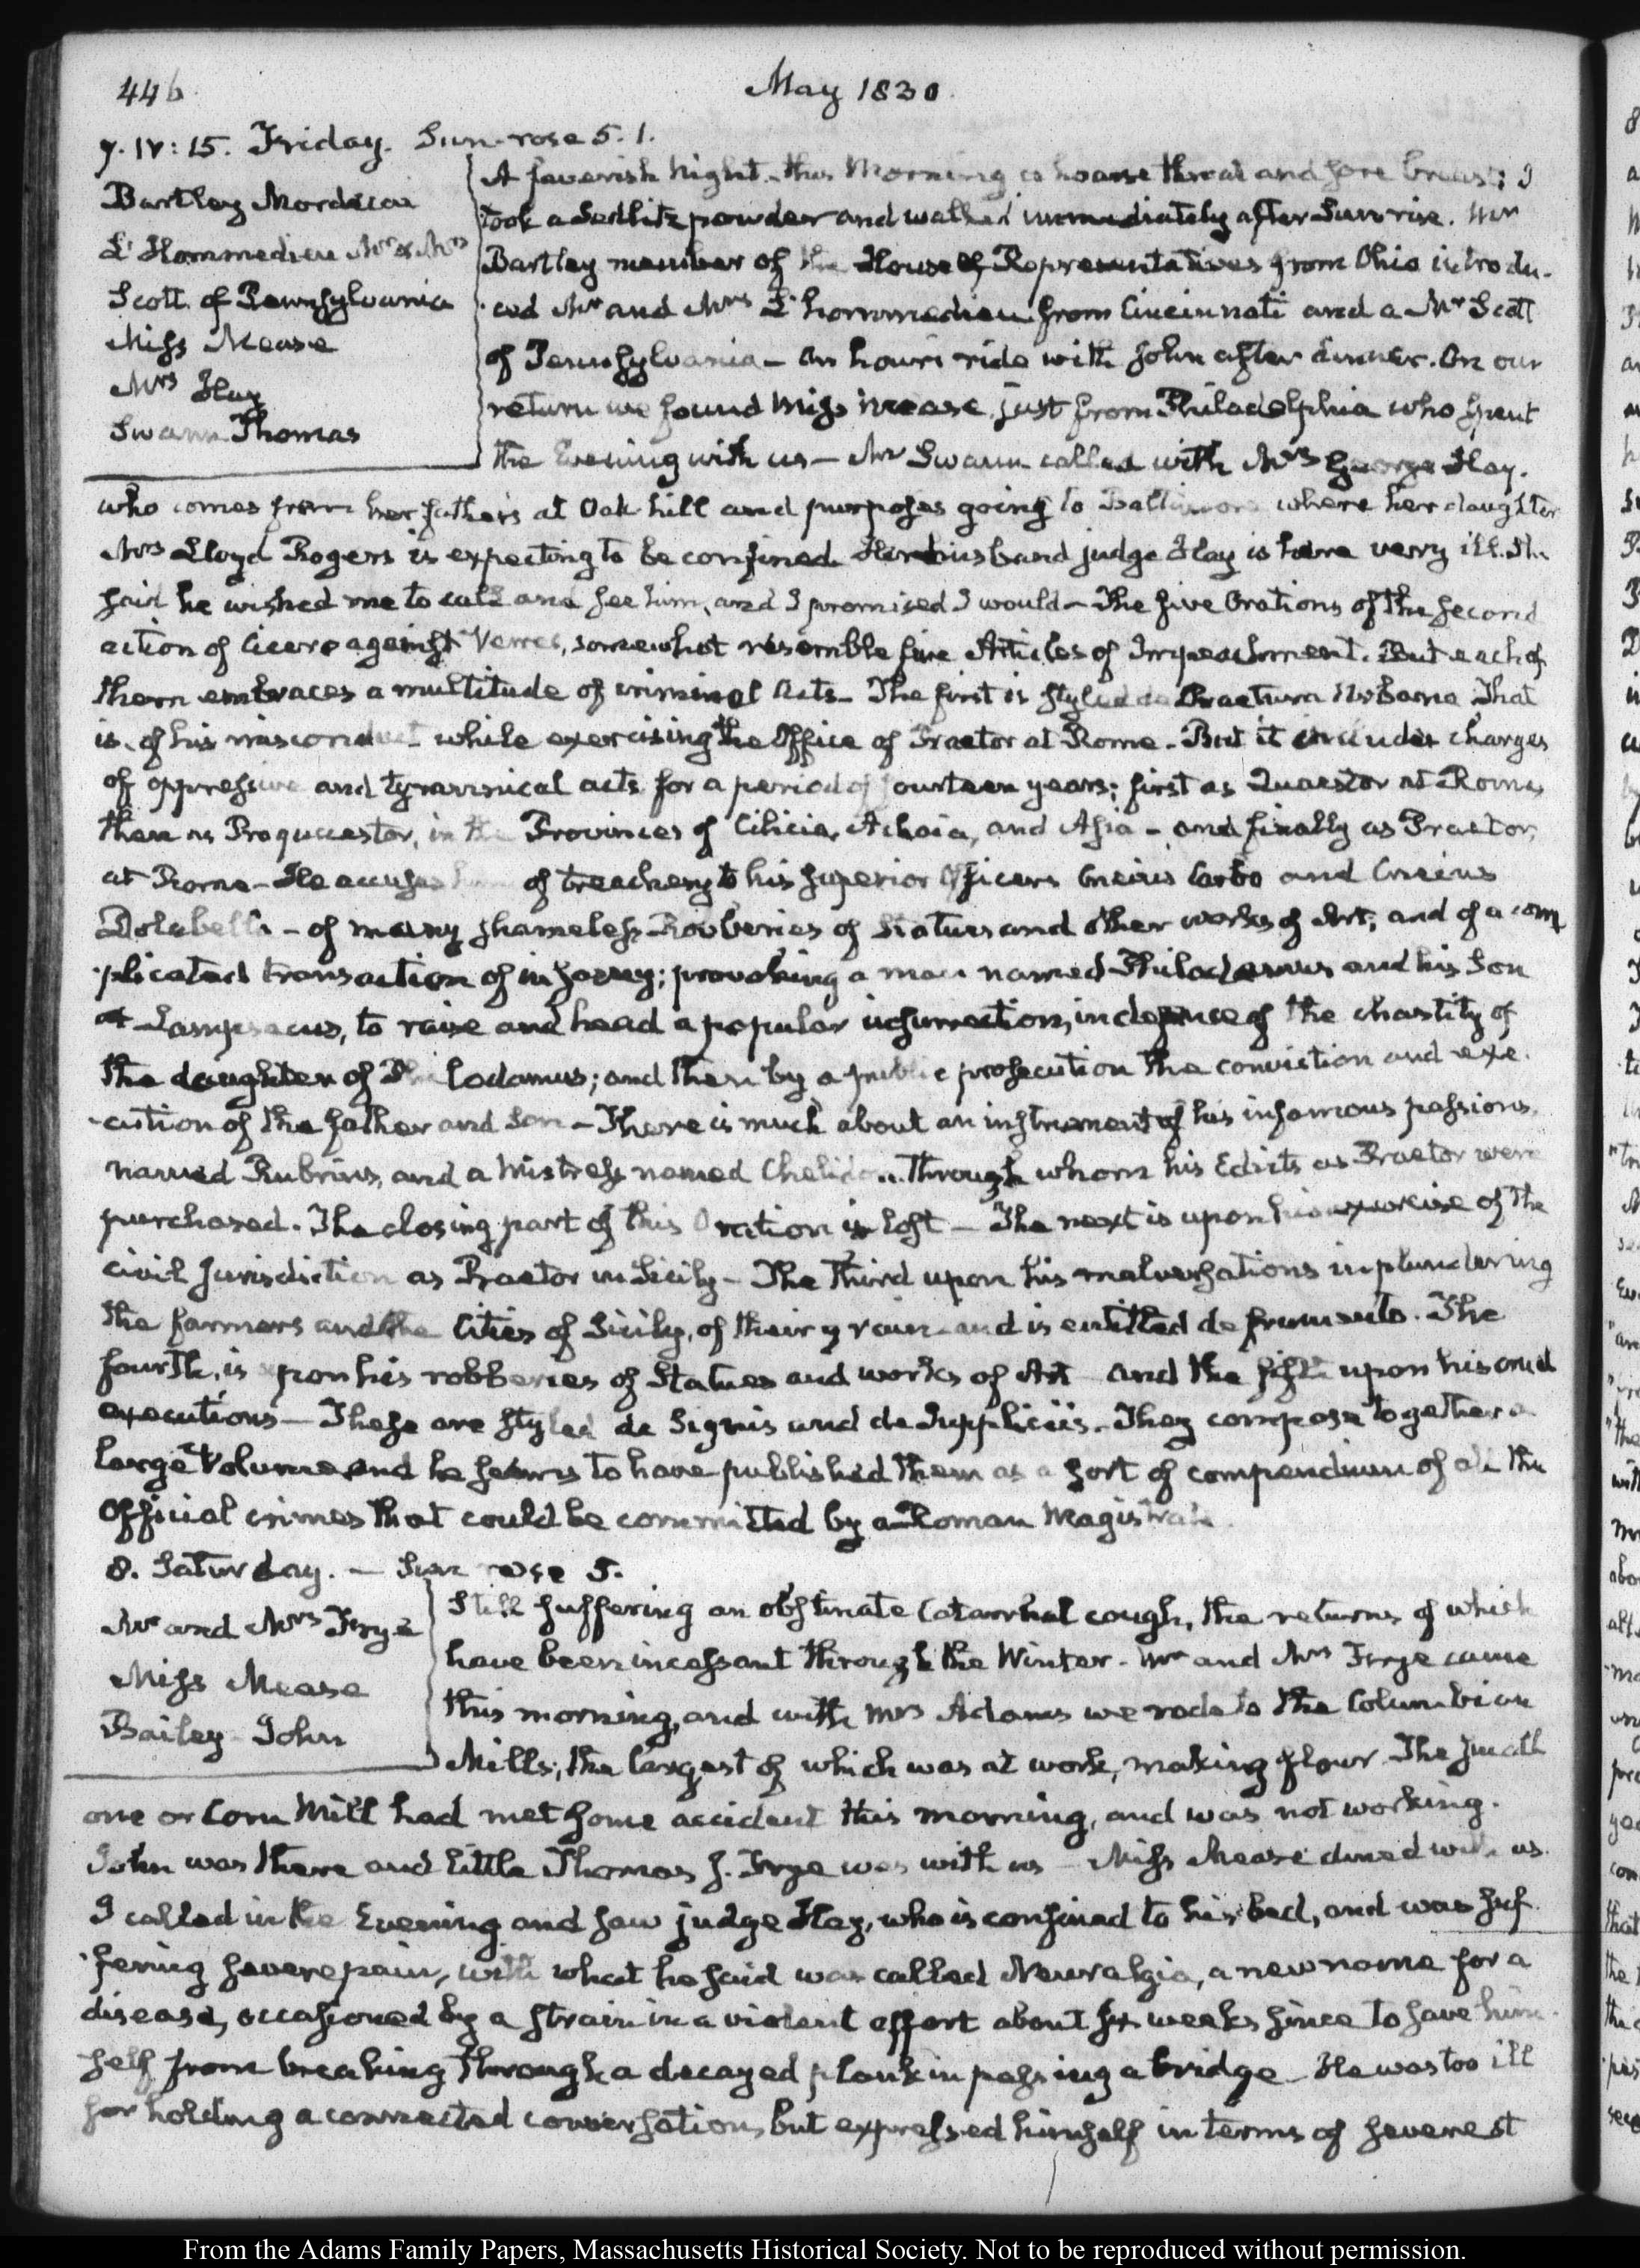 446
May 1830.
7. IV: 15. Friday. Sun rose 5.1.
Bartley Mordecai
L'Hommedieu Mr & Mrs
Scott of Pennsylvania
Miss Mease
Mrs Hay
Swann Thomas
A feverish Night. this Morning a hoarse throat and sore breast; I
took a Sedlitz powder and walked immediately after Sunrise. Mr
Bartley member of the House of Representatives from Ohio introdu-
-ced Mr and Mrs L'hommedieu from Cincinnati and a Mr Scott
of Pennsylvania — An hour's ride with John after dinner. On our
return we found Miss Mease, just from Philadelphia who spent
the Evening with us — Mr Swann called with Mrs George Hay.
who comes from her father's at Oak hill and purposes going to Baltimore where her daughter
Mrs Lloyd Rogers is expecting to be confined. Her husband judge Hay is here very ill. She
said he wished me to call and see him, and I promised I would — The five Orations of the second
action of Cicero against Verres, somewhat resemble five Articles of Impeachment. But each of
them embraces a multitude of criminal Acts — The first is styled de Praetura Urbana That
is, of his misconduct while exercising the Office of Praetor at Rome — But it includes charges
of oppressive and tyrannical acts for a period of fourteen years; first as Quaestor at Rome,
then as Proquaestor, in the Provinces of Cilicia, Achaia, and Asia — and finally as Praetor,
at Rome — He accuses him of treachery to his superior Officers Cneius Carbo and Cneius
Dolabella — of many shameless Robberies of Statues and other works of Art; and of a com
-plicated transaction of infamy; provoking a man named Philodamus and his Son
at Lampsacus, to raise and head a popular insurrection, in defence of the chastity of
the daughter of Philodamus; and then by a public prosecution the conviction and exe-
-cution of the father and Son — There is much about an instrument of his infamous passions,
named Rubrius, and a Mistress named Chelidon. through whom his Edicts as Praetor were
purchased. The closing part of this Oration is lost — The next is upon his exercise of the
civil Jurisdiction as Praetor in Sicily — The third upon his malversations in plundering
the farmers and the Cities of Sicily, of their grain and is entitled de frumento. The
fourth, is upon his robberies of Statues and works of Art and the fifth upon his cruel
executions — These are styled de Signis and de Suppliciis. They compose together a
large Volume and he seems to have published them as a sort of compendium of all the
Official crimes that could be committed by a Roman Magistrate.
8. Saturday. — Sun rose 5.
Mr and Mrs Frye
Miss Mease
Bailey John
Still suffering an obstinate Catarrhal cough, the returns of which
have been incessant through the Winter — Mr and Mrs Frye came
this morning, and with Mrs Adams we rode to the Columbian
Mills; the largest of which was at work, making flour. The small
one or Corn Mill had met some accident this morning, and was not working.
John was there and little Thomas J. Frye was with us — Miss Mease dined with us.
I called in the Evening and saw judge Hay, who is confined to his bed, and was suf
-fering severe pain, with what he said was called Neuralgia, a new name for a
disease, occasioned by a strain in a violent effort about six weeks since to save him-
self from breaking through a decayed plank in passing a bridge — He was too ill
for holding a connected conversation, but expressed himself in terms of severest
From the Adams Family Papers, Massachusetts Historical Society. Not to be reproduced without permission.